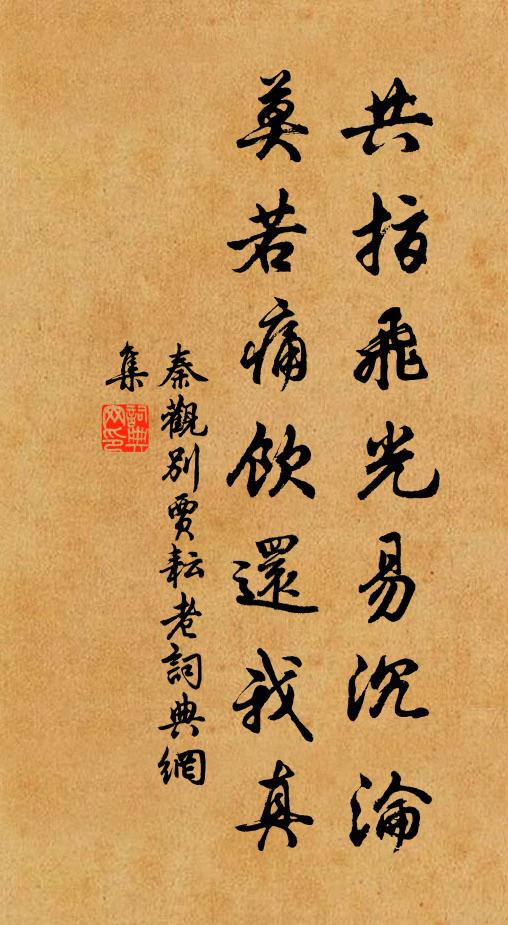 共指飛光易沉淪
莫若痛飲還我真
秦觀別賈耘老詞典網
集
詞典
网印